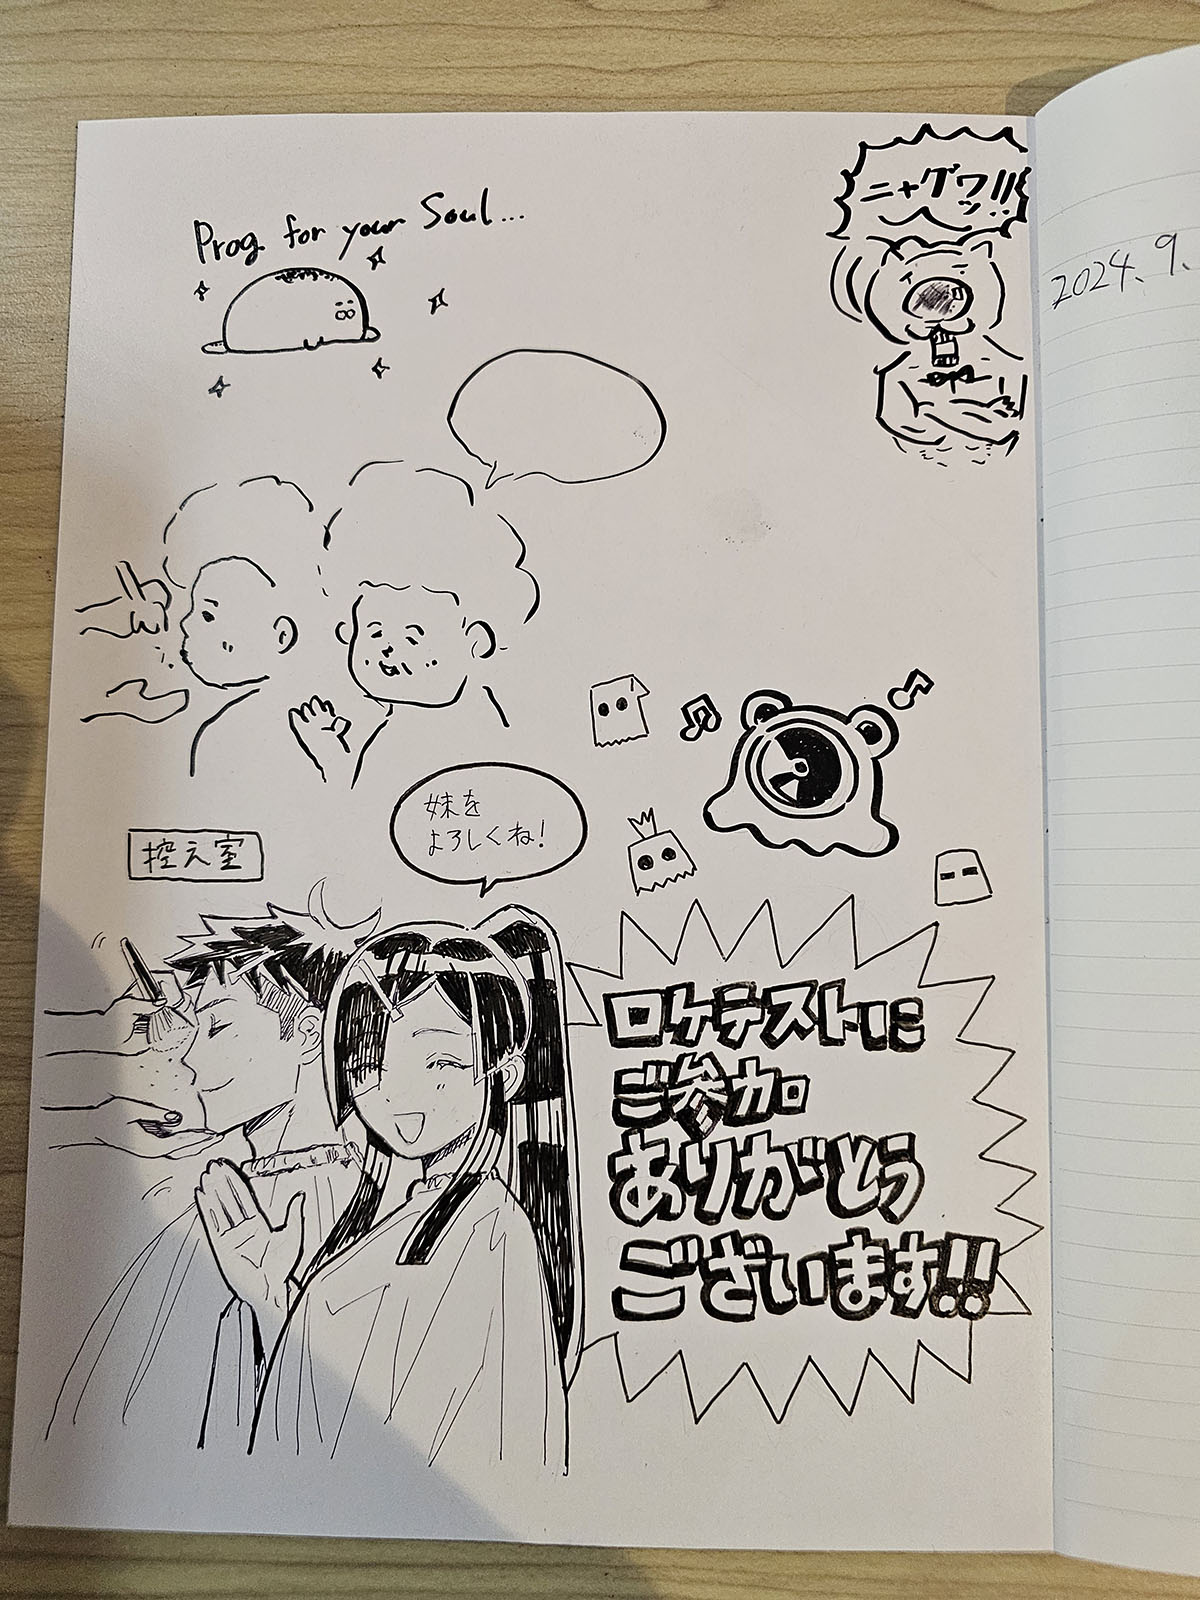 Prog for your Soul...
ニャグワッ!!
2024.9.
妹を
よろしくね!
控え室
ロケテストに
ご参加
ありがとう
ございます!!